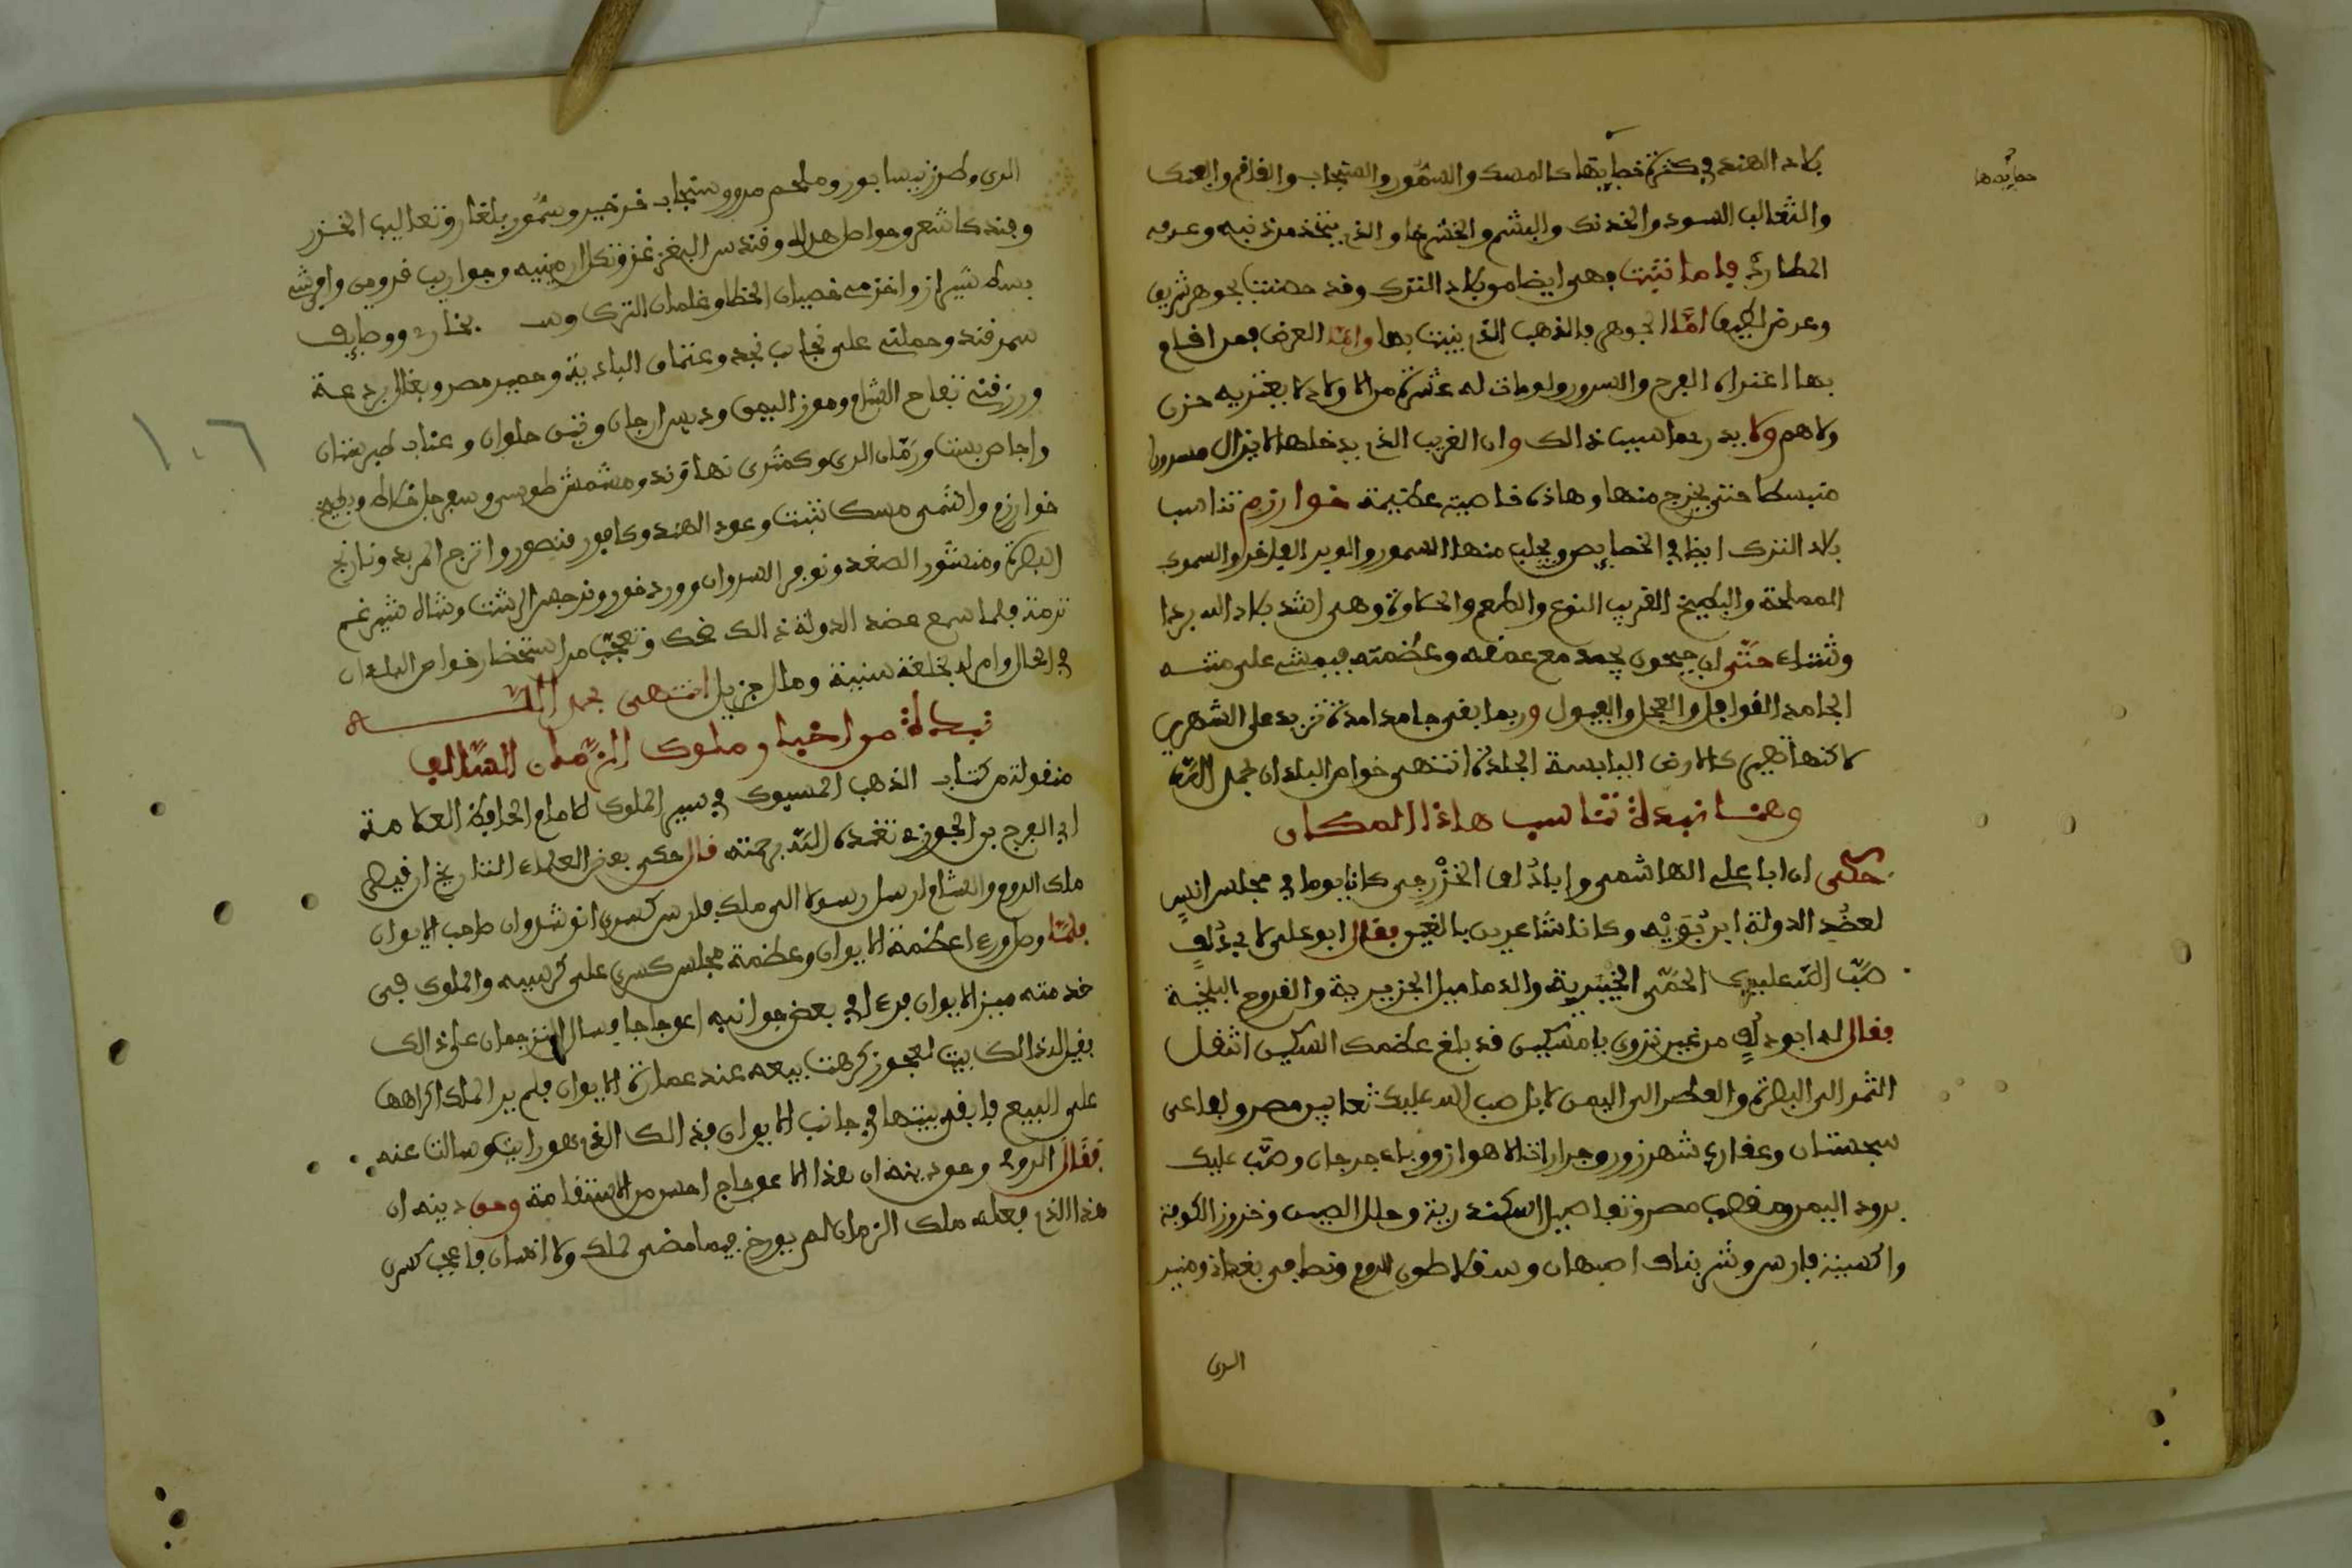 بلاد الهند في كثرة خصايصها كالمسك والسمّور والسنجاب والقاقم والفنك
خصايصها
والثعالب السود والخدنك واليشم والختوا والذي يتخذ مذنبه وعرفه
المطارد فاما تبّت وهي ايضا من بلاد الترك وقد خصّت بجوهر شريف
وعرض لطيف امّا الجوهر فالذهب الذي ينبت بها وامّا العرض فمن اقام
بها اعتراه الفرح والسرور ولو مات له عشرة من الاولاد لا يعتريه حزن
ولا هم ولا يدرى ما سبب ذالك وان الغريب الذي يدخلها لا يزال مسرورا
منبسطا حتى يخرج منها وهاذه خاصية عظيمة خوارزم تناسب
بلاد الترك ايضا في الخصايص ويجلب منها السمور والوبر الوافر والسموك
المملحة والبطيخ الغريب النوع والطعم والحلاوة وهي اشد بلاد الله بردا
وشتاء حتّى ان جيحون يجمد مع عمقه وعظمته فيمشى على متنه
الجامد القوافل والعجل والفيول وربما بقى جامدا مدة تزيد على الشهرين
لاكنها تصير كالارض اليابسة الجلدة انتهى خواص البلدان بحمد الله
وهنا نبذة تناسب هاذا المكان
حكى ان ابا علي الهاشمي وابا دُلف الخزرجي كانا يوما في مجلس انيس
لعضُد الدولة ابن بُوَيْه وكانا شاعرين بالغين فقال ابو على لابي دُلفٍ
صَبّ الله عليك الحمّى الخيبرية والدماميل الجزيرية والقروح البلخية
فقال له ابو دلفٍ من غير تروي يا مسكين قد بلغ عظمك السكين اتنقل
التمر الى البصرة والعطر الى اليمن لا بل صب الله عليك ثعابين مصر وافاعى
سجستان وعقارب شهرزور وجرارات الاهواز ووباء جرجان وصَبّ عليك
برود اليمن وقصب مصر وتفاصيل اسكندرية وحلل الصين وخزوز الكوفة
واكسية فارس وشربنات اصبهان وسقلاطون الروم وتصافى بغداد ومنير
الرى
الرى وطرز نيسابور وملحم مرو وسنجاب خرخيز وسمّور بلغار وثعاليب الخزر
وفنك كاشغر وحواصل هراة وقندس البغزغز وتكك ارمينية وجوارب قزوين وافرشه
بسط شيراز واخدمه خصيان الخطا وغلمان الترك وس بخارى ووصايف
سمرقند وحملنى على نجايب نجد وعتاق البادية وحمير مصر وبغال بردعة
ورزقنى تفاح الشام وموز اليمن ودبس ارجان وتين حلوان وعناب طبرستان
١٠٦
واجاص بست ورُمّان الرى وكمثرى نهاوند ومشمش طوس وسفرجل خلاط وبطيخ
خوارزم واشمى مسك تبت وعود الهند وكافور فنصور واترج المربد ونارنج
البصرة ومنشور الصغد ونوفر السروان وورد خور ونرجس الرشت وشاه شبرغم
ترمذ فلما سمع عضد الدولة ذالك ضحك وتعجّب من استحضار خواص البلدان
في الحال وامر له بخلعة سنية ومال جزيل انتهى بحمد الله
نبذة من اخبار ملوك الزمان السّالف
منقولة من كتاب الذهب المسبوك في سير الملوك للامام الحافظ العلامة
ابي الفرج بن الجوزي تغمده الله برحمته قال حكى بعض العلماء التاريخ ان قيصر
ملك الروم والشام ارسل رسولا الى ملك فارس كسرى انوشروان صاحب الايوان
فلمّا وصل ورءا عظمة الايوان وعظمة مجلس كسرى على كرسيه والملوك في
خدمته ميز الايوان فرءا في بعض جوانبه اعوجاجا فسال الترجمان على ذالك
فقيل له ذالك بيت لعجوز كرهت بيعه عند عمارة الايوان فلم ير الملك اكراهها
على البيع فابقى بيتها في جانب الايوان فذالك الذي هو رايت وسالت عنه
فَقَالَ الرومى وحق دينه ان هذا الاعوجاج احسن من الاستقامة وحق دينه ان
هذا الذي فعله ملك الزمان لم يورخ فيما مضى لملك ولا انسان فاعجب كسرى